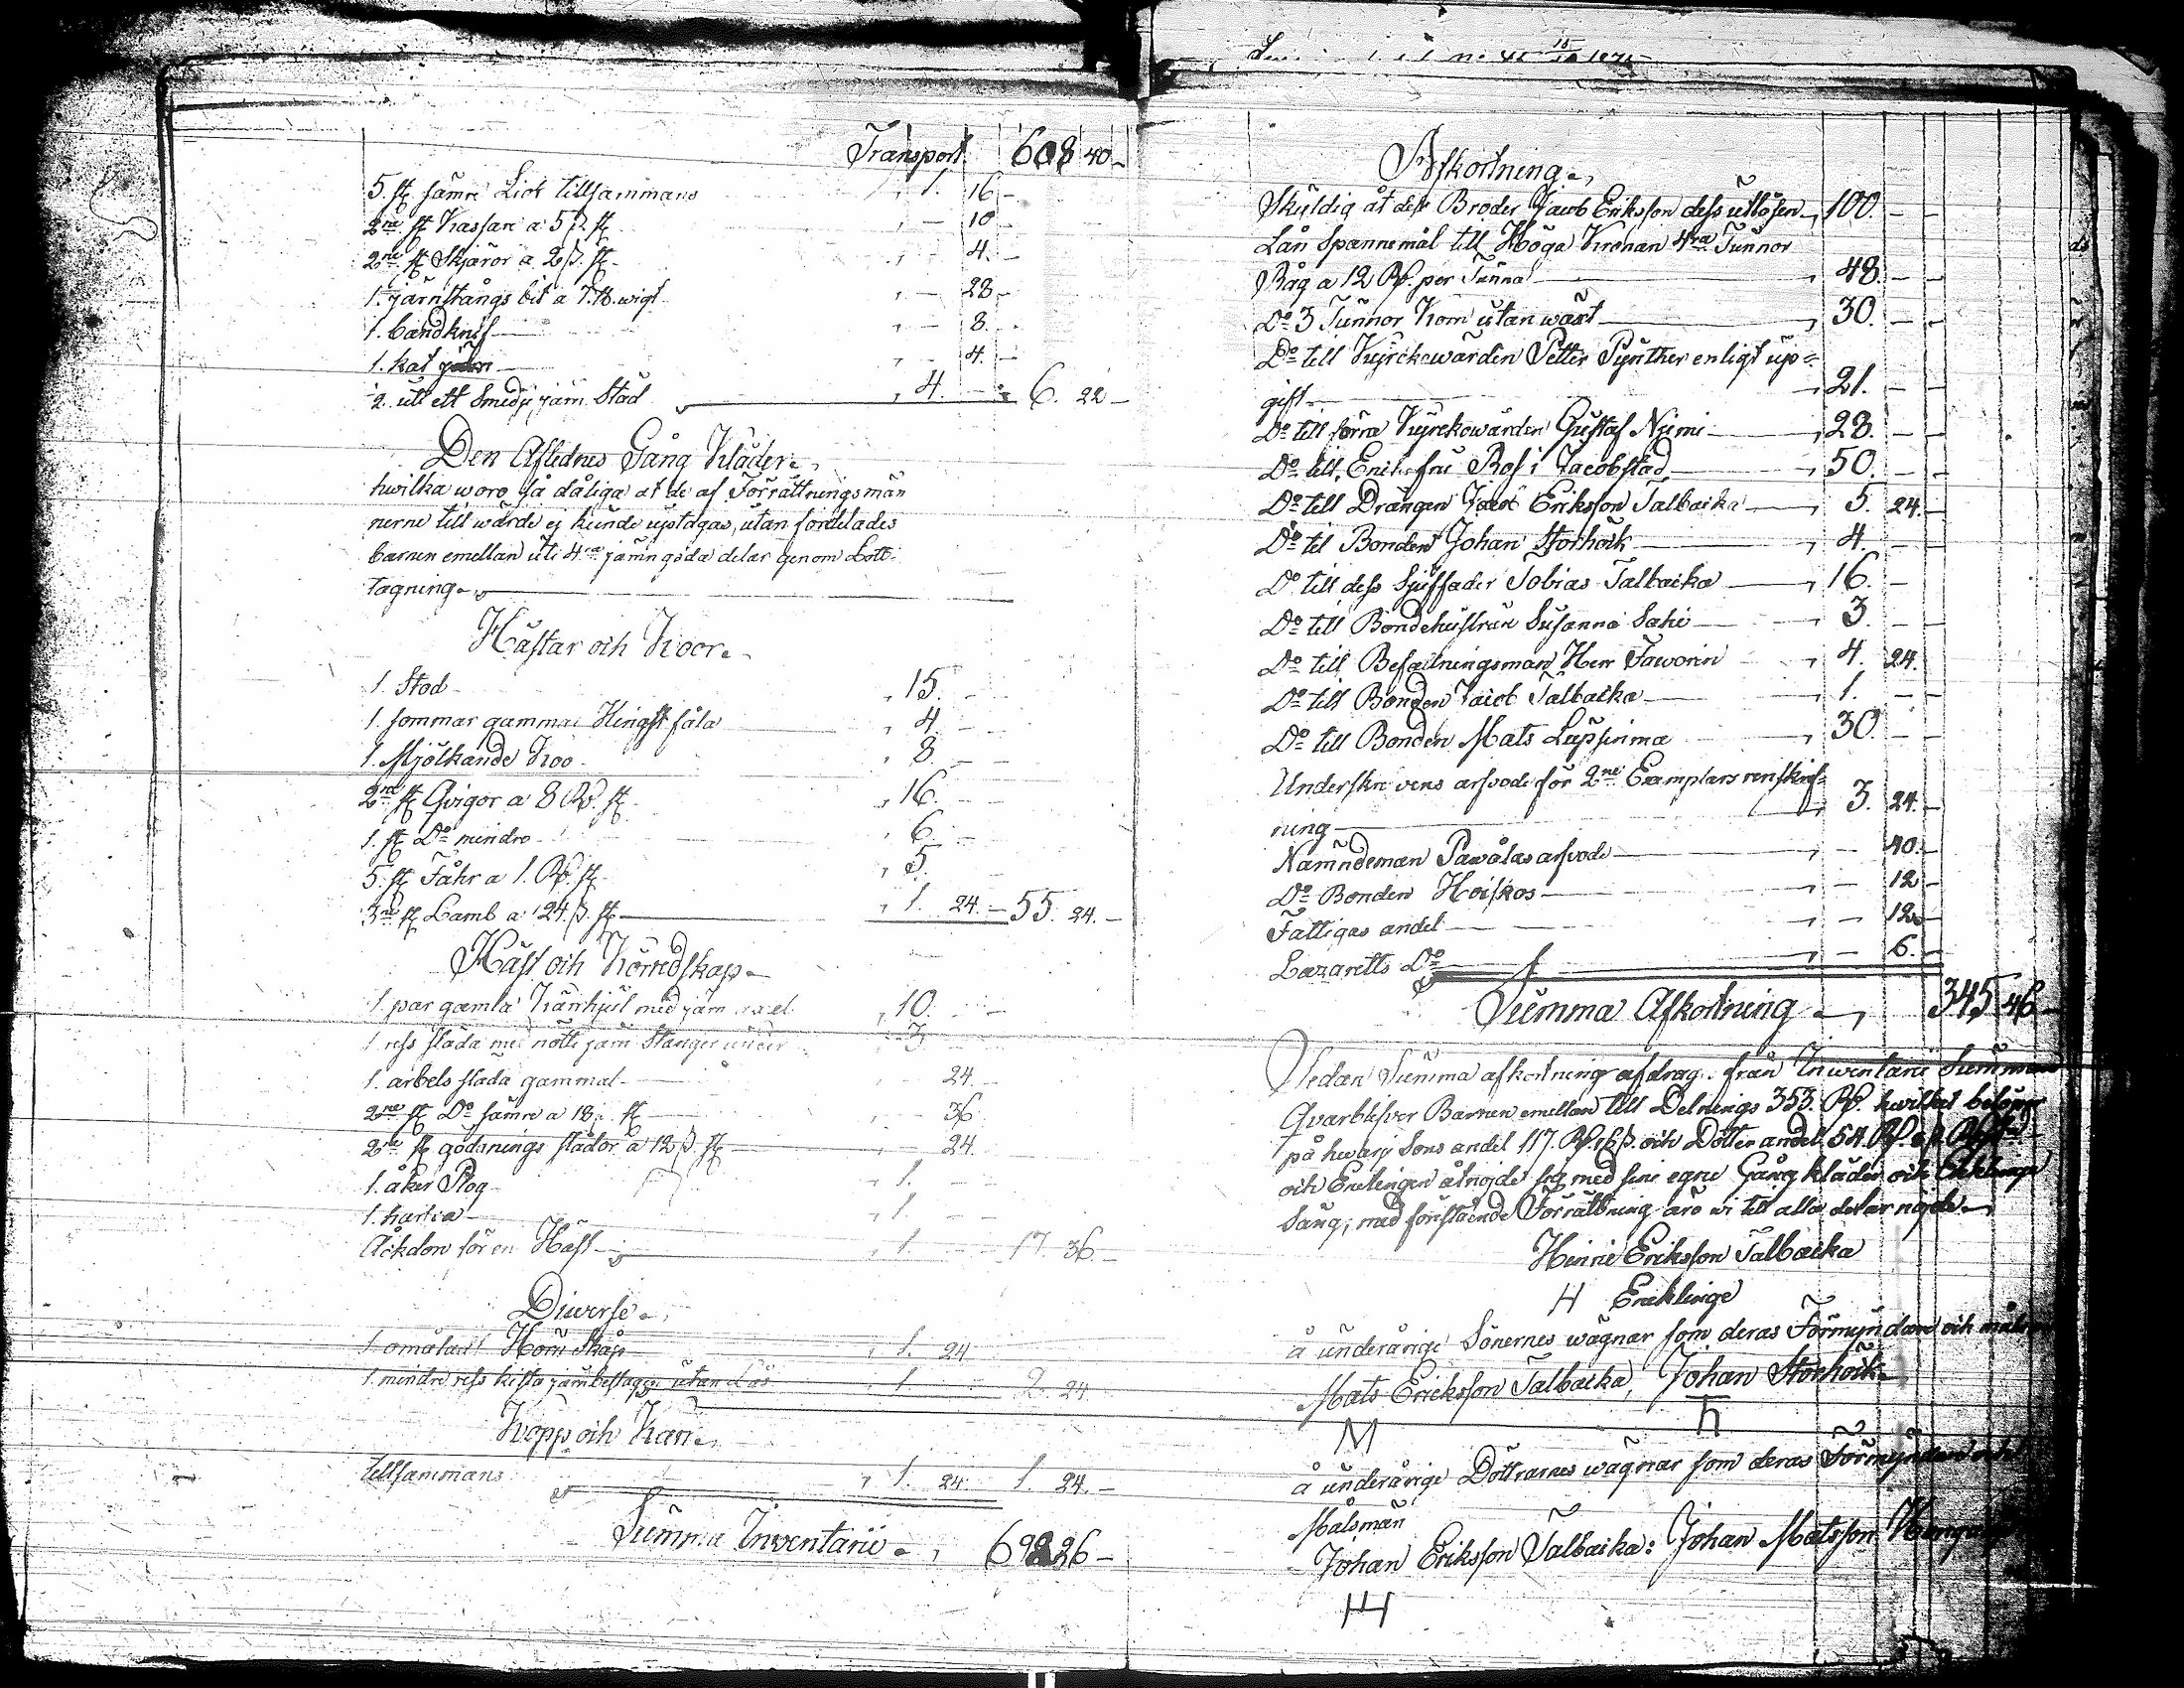 Transport 608 40 –
5. st sämre Liot tillsammans 1. 16 –
2ne st Krassare a 5 ß. st 10 –
2ne st Skjäror a 2 ß. st 4. –
1. järnstångs bit a 7. ℔. wigt 28 –
1. bandknif 8.
1. kat 4. –
2. utt ett Smedje järn Städ 4. – 6. 22 –
Den Aflednes Gång Kläder
hwilka woro så dåliga at de af Förrättningsmän
nerne till wärde ej kunde uptagas, utan fördelades
barnen emellan uti 4ra jämngoda delar genom Lott-
tagning
Hästar och Koor
1. Stod 15. –
1. sommar gammal Hingst fåla 4. –
1. Mjölkande Koo 8. – –
2ne st Qvigor a 8 Rub. st 16. – –
1. st Do mindre 6. –
5. st Fåhr a 1. Rub. st 5.
3ne st Lamb a 24. ß. st 1. 24. – 55. 24. –
Häst och Körredskap
1. par gamla Kärrhjul med järn axel 10. –
1. ress släda med nötte järn Stänger under 3
1. arbets släda gammal 24. –
2ne st Do sämre a 18. st 36
2ne st gödsnings slädor a 12 ß st 24.
1. åker Plog 1. –
1. harfva 1. –
Åkdon för en Häst 1. 17. 36. –
Diverse
1. omåladt Hörn Skåp 1. 24
1. mindre ress kista järnbeslagen utan Lås 1. 2. 24
Kopp och Kar
tillsammans 1. 24 1. 24. –
Summa Inventarii 692 26 –
15
1871
Afkortning
Skuldig åt dess Broder Jacob Eriksson dess utlösen 100. – –
Lån Spannemål till Höga Kronan 4ra Tunnor
Råg a 12 Rub. per Tunna 48. – –
Do 3 Tunnor Korn utan wäxt 30. – –
Do till Kyrckowärden Petter Pynther enligt up-
gift 21. – –
Do till förra Kyrckowärden Gustaf Nyimi 28. – –
Do till Enkefru Ros i Jacobstad 50. – –
Do till Drängen Jacob Eriksson Talbacka 5. 24. –
Do til Bonden Johan Storhöik 4. – –
Do till dess Sjuffader Tobias Talbacka 16. –
Do till Bondehustrun Susanna Sahi 3. – –
Do till Befallningsman Herr Faworin 4. 24.
Do till Bonden Jacob Talbacka 1. – –
Do till Bonden Mats Luppinma 30 – –
Underskrevens arfvode för 2ne Exemplars renskrif-
ning 3. 24. –
Nämndeman Pawålas arfvode – 40. –
Do Bonden Hoiskos – 12 –
Fattigas andel – 12 –
Lazaretts Do – 6. –
Summa Afkortning 345 46 –
Sedan Summa afkortning afdrag. från Inwentarii Summan
Qvarblifver Barnen emellan till Delnings 353. Rub. hwilket belöper
på hwarj Sons andel 117. Rub. 16 ß. och Dotter andel 58. Rub.
och Encklingen åtnöjde sig med sine egne Gång kläder och Encklings
Säng; med förestående Förrättning äro wi til alla delar nöjde
Hinric Eriksson Talbacka
H Encklinge
å underårige Sönernes wägnar som deras Förmyndare och målsmän
Mats Ericksson Talbacka, Johan Storhöik
M
å underårige Döttrarnes wägnar som deras Förmyndare och
Målsmän
Johan Eriksson Talbacka: Johan Matsson
H